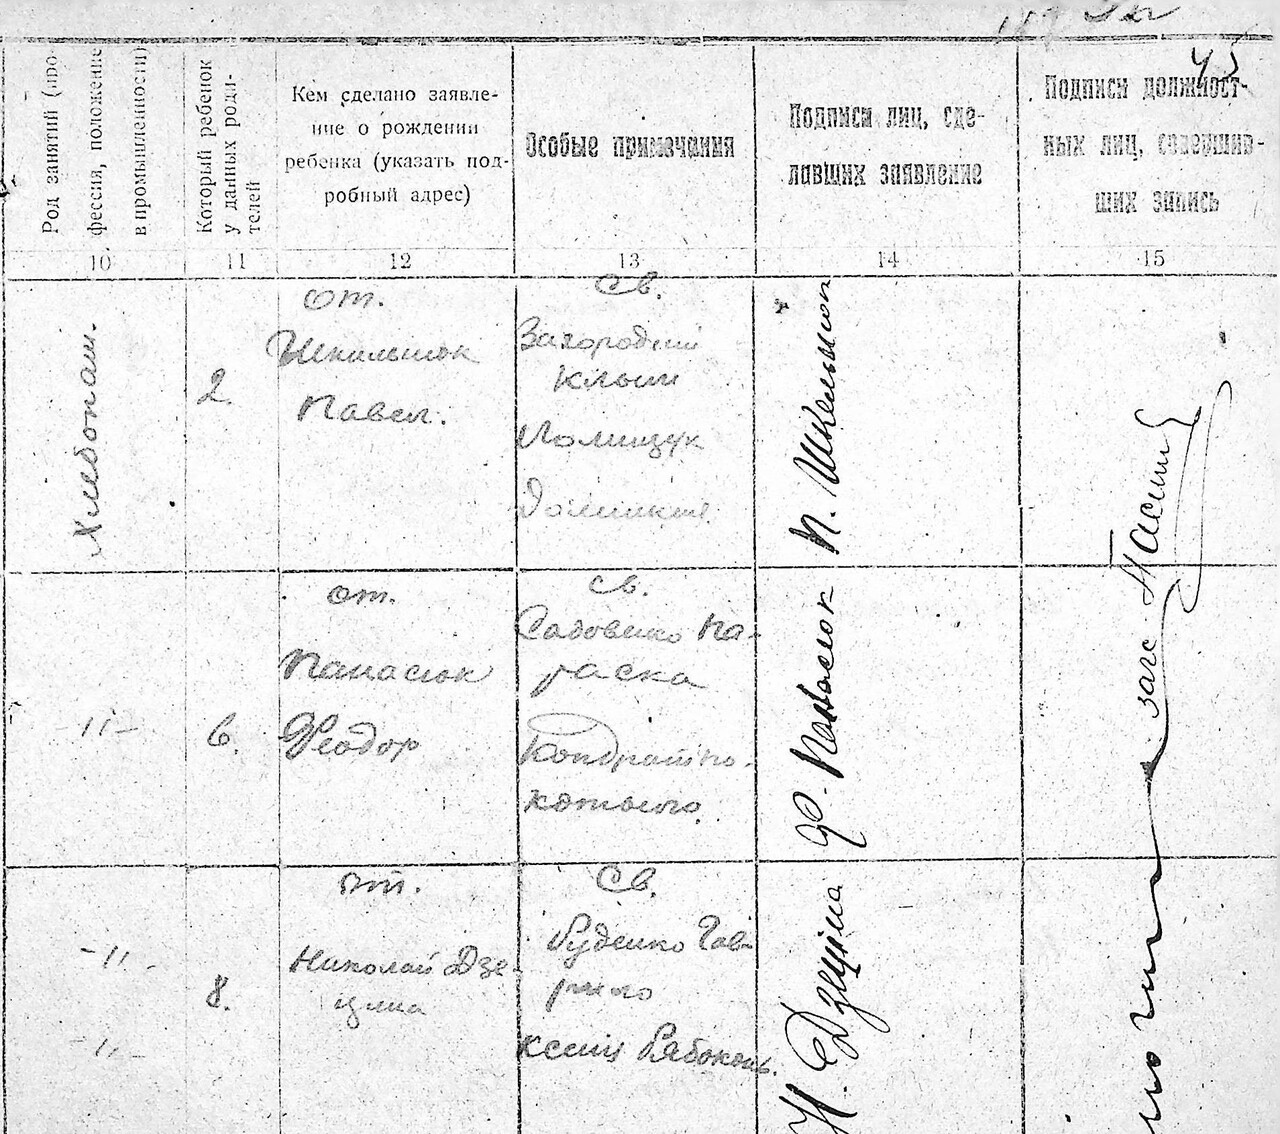 45
Род занятий (про-
фессия, положение
в промышленности)
Который ребенок
у данных роди-
телей
Кем сделано заявле-
ние о рождении
ребенка (указать под-
робный адрес)
Особые примечания
Подписи лиц, сде-
лавших заявление
Подписи должност-
ных лиц, совершив-
ших запись
10
11
12
13
14
15
Хлебопаш.
2.
от.
Шкильнюк
Павел.
Св.
Загородний
Клим
Полищук
П. Шкельнюк
-〃-
6.
от.
Панасюк
Феодор
св.
Садовенко Па-
раска
Ф. Панасюк
загс
-〃-
-〃-
8.
от.
Николай Дзе-
цина
Св.
Руденко Гав-
рило
Рябоконь.
Н. Дзецина